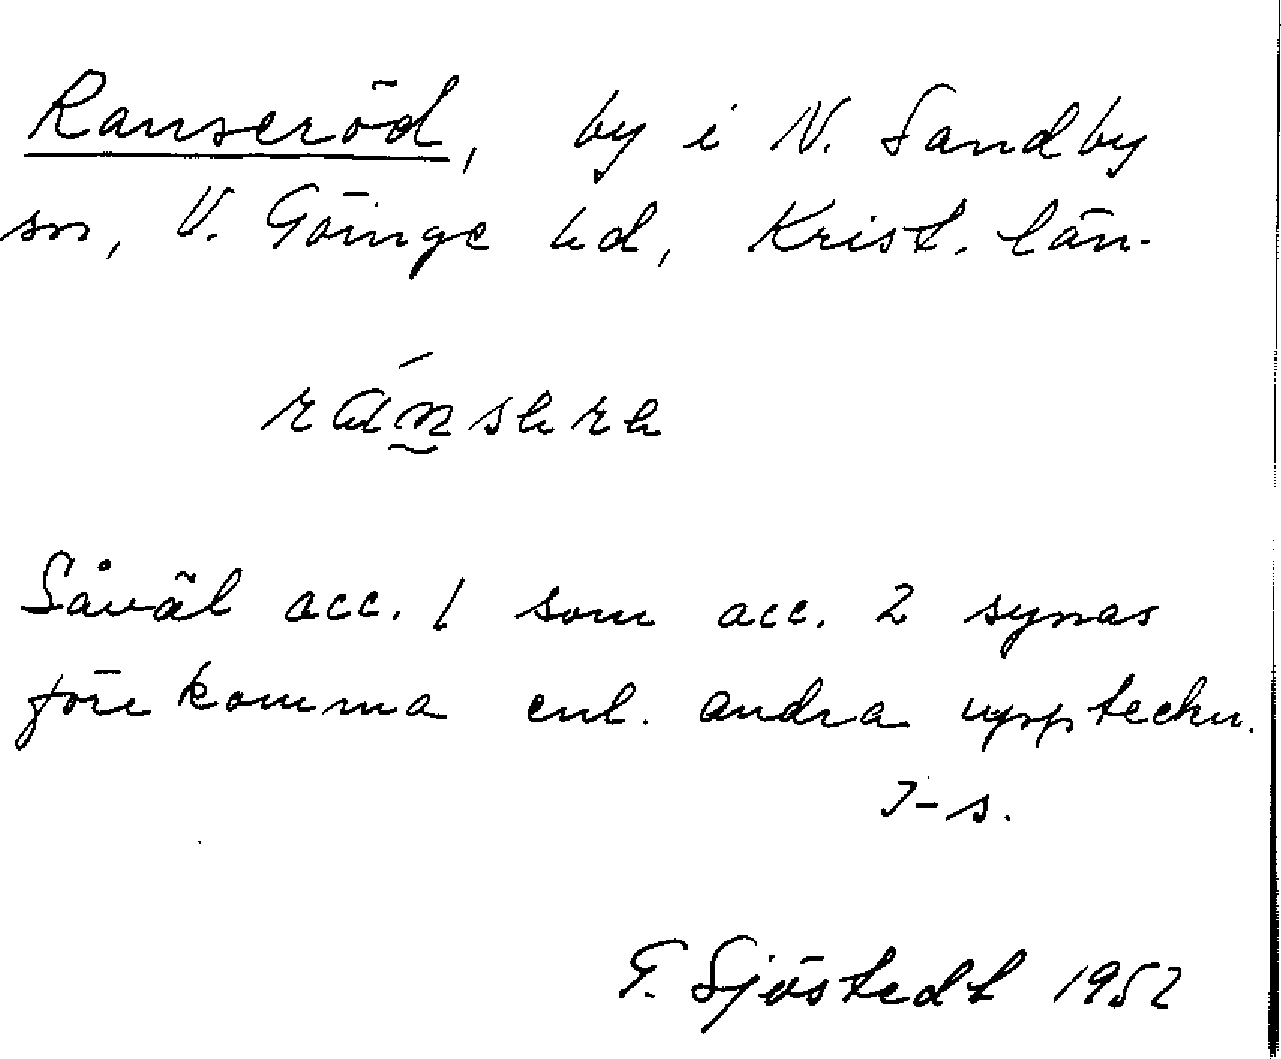 Ranseröd, by i N. Sandby
sn, V. Göinge hd, Krist. län.
Såväl acc. 1 som acc. 2 synas
förekomma enl. andra uppteckn.
I-s.
G. Sjöstedt 1952